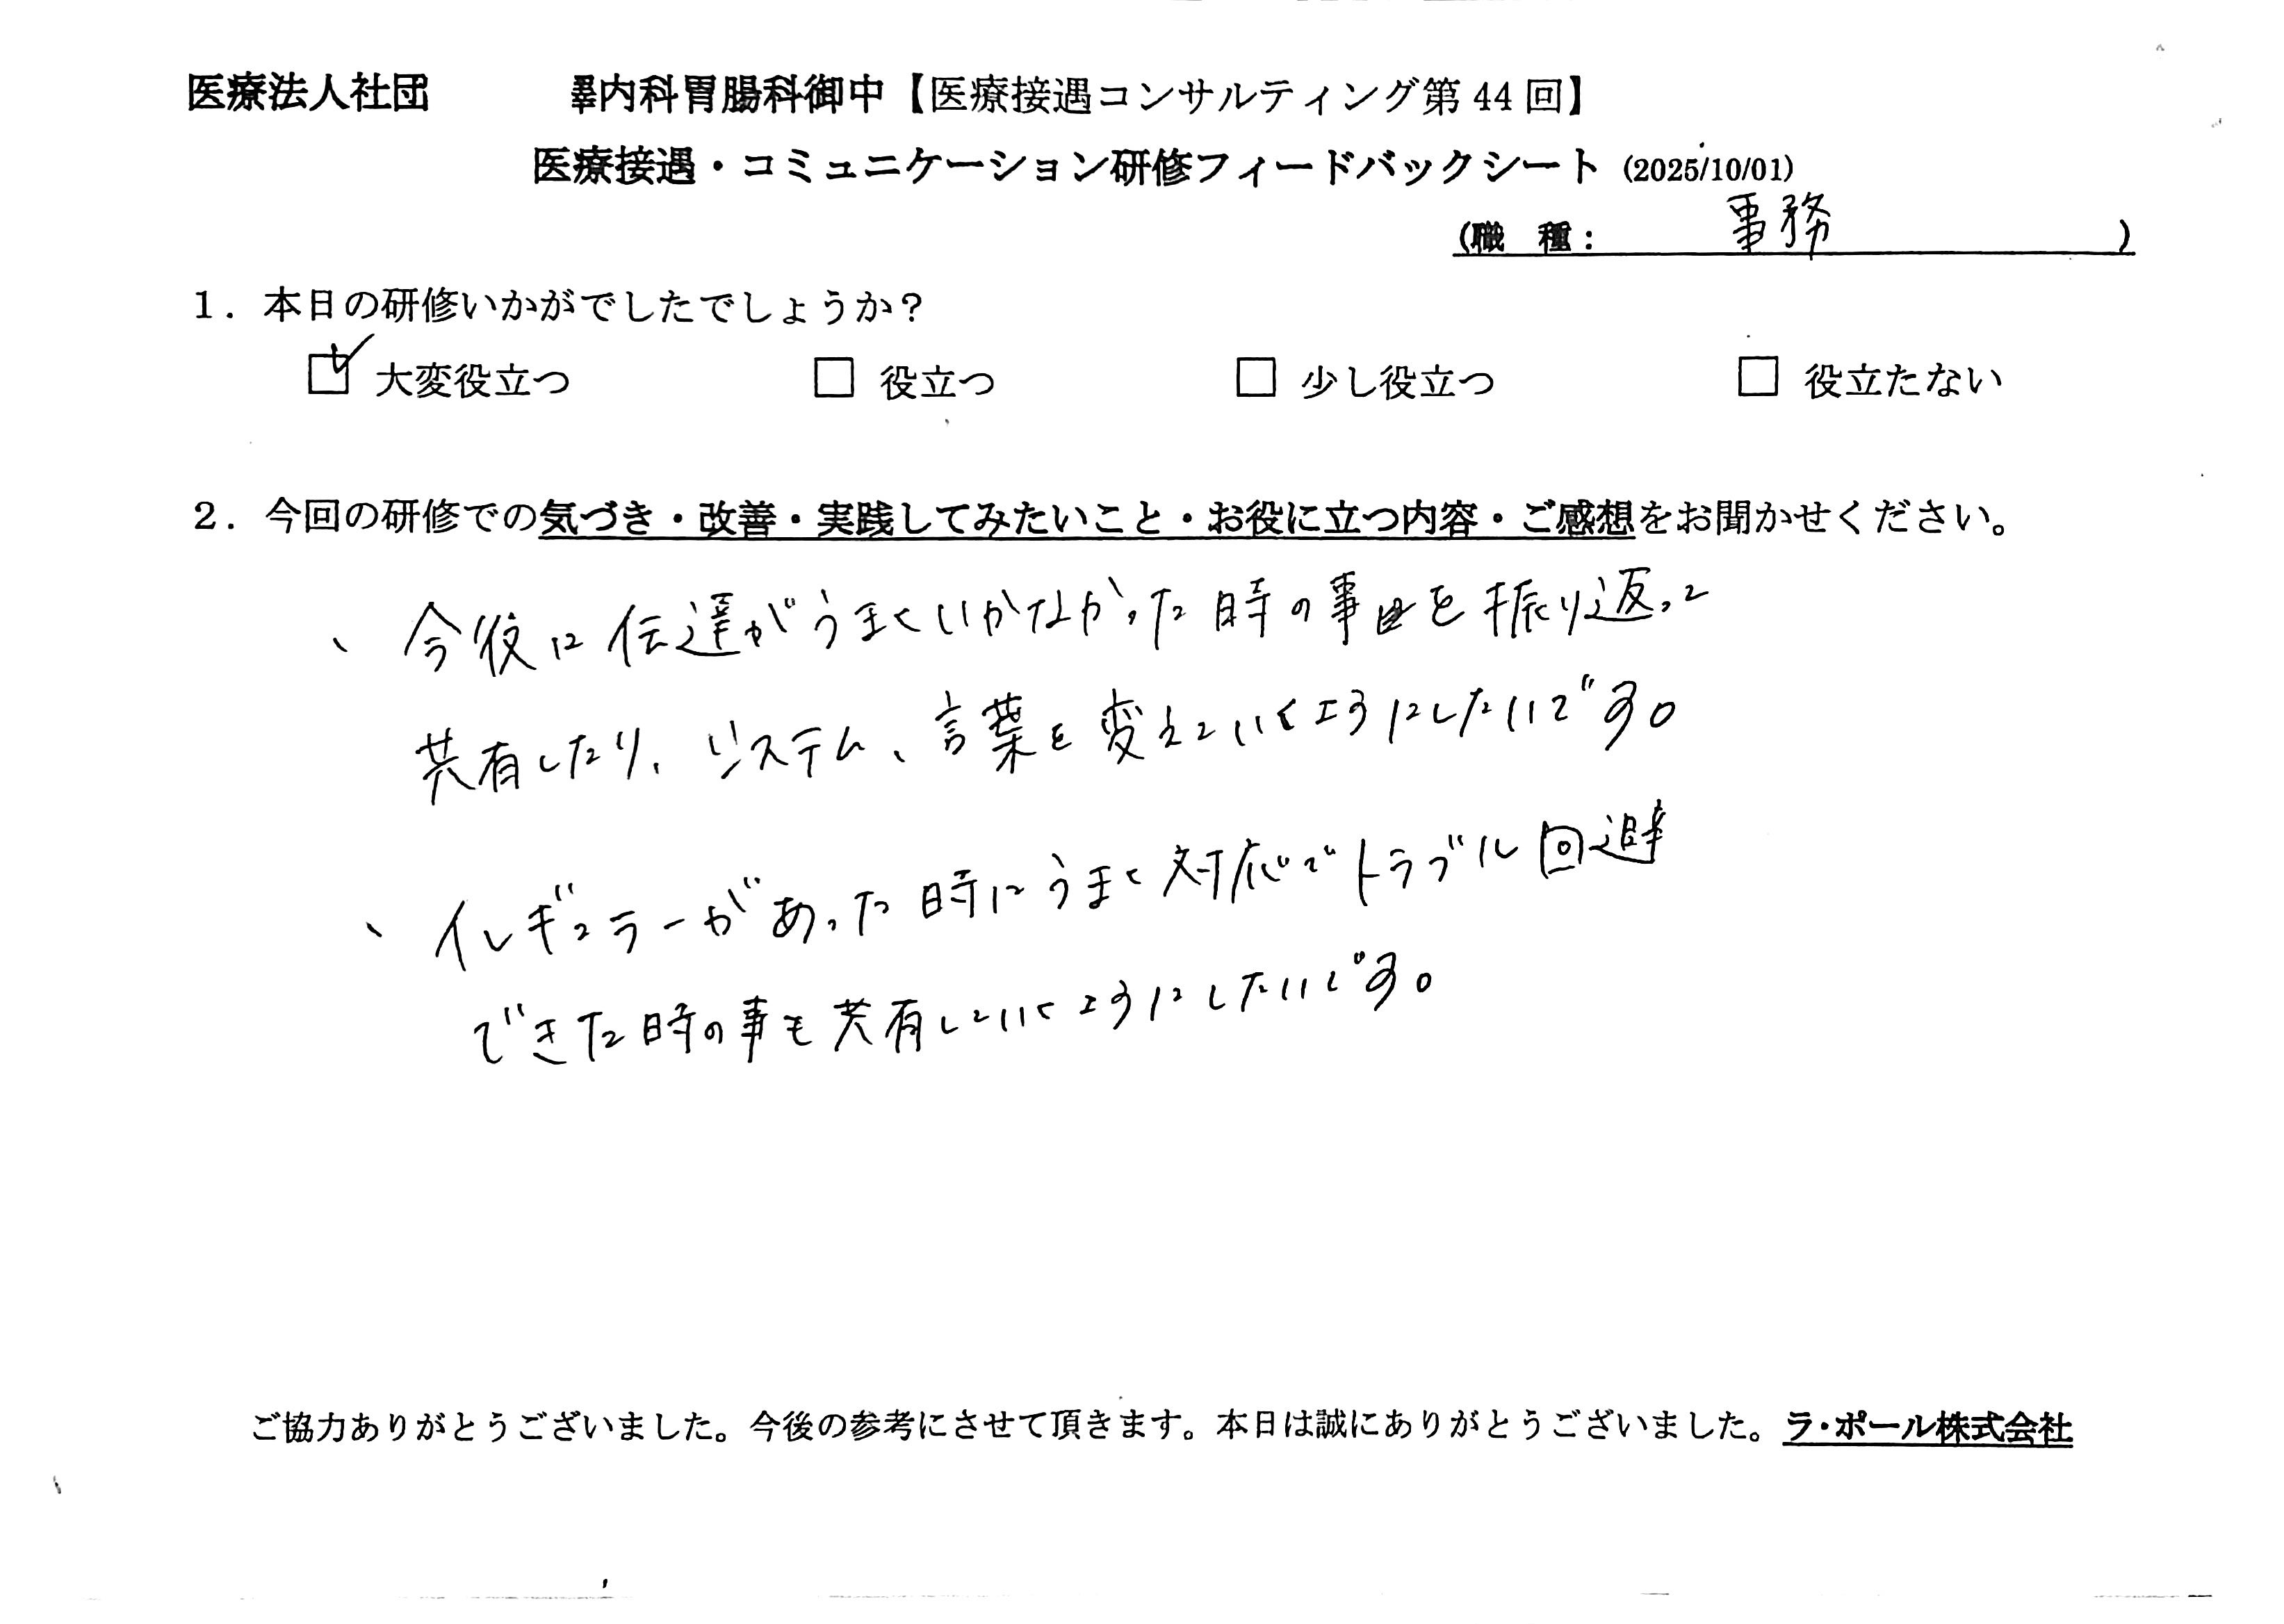 医療法人社団 内科胃腸科御中【医療接遇コンサルティング第 44 回】
医療接遇・コミュニケーション研修フィードバックシート (2025/10/01)
(職 種： 事務 )
1．本日の研修いかがでしたでしょうか？
☑ 大変役立つ □ 役立つ □ 少し役立つ □ 役立たない
2．今回の研修での気づき・改善・実践してみたいこと・お役に立つ内容・ご感想をお聞かせください。
、今後に伝達がうまくいかなかった時の事を振り返って
共有したり、システム、言葉を変えていくようにしたいです。
、イレギュラーがあった時にうまく対応でトラブル回避
できた時の事も共有していくようにしたいです。
ご協力ありがとうございました。今後の参考にさせて頂きます。本日は誠にありがとうございました。ラ・ポール株式会社